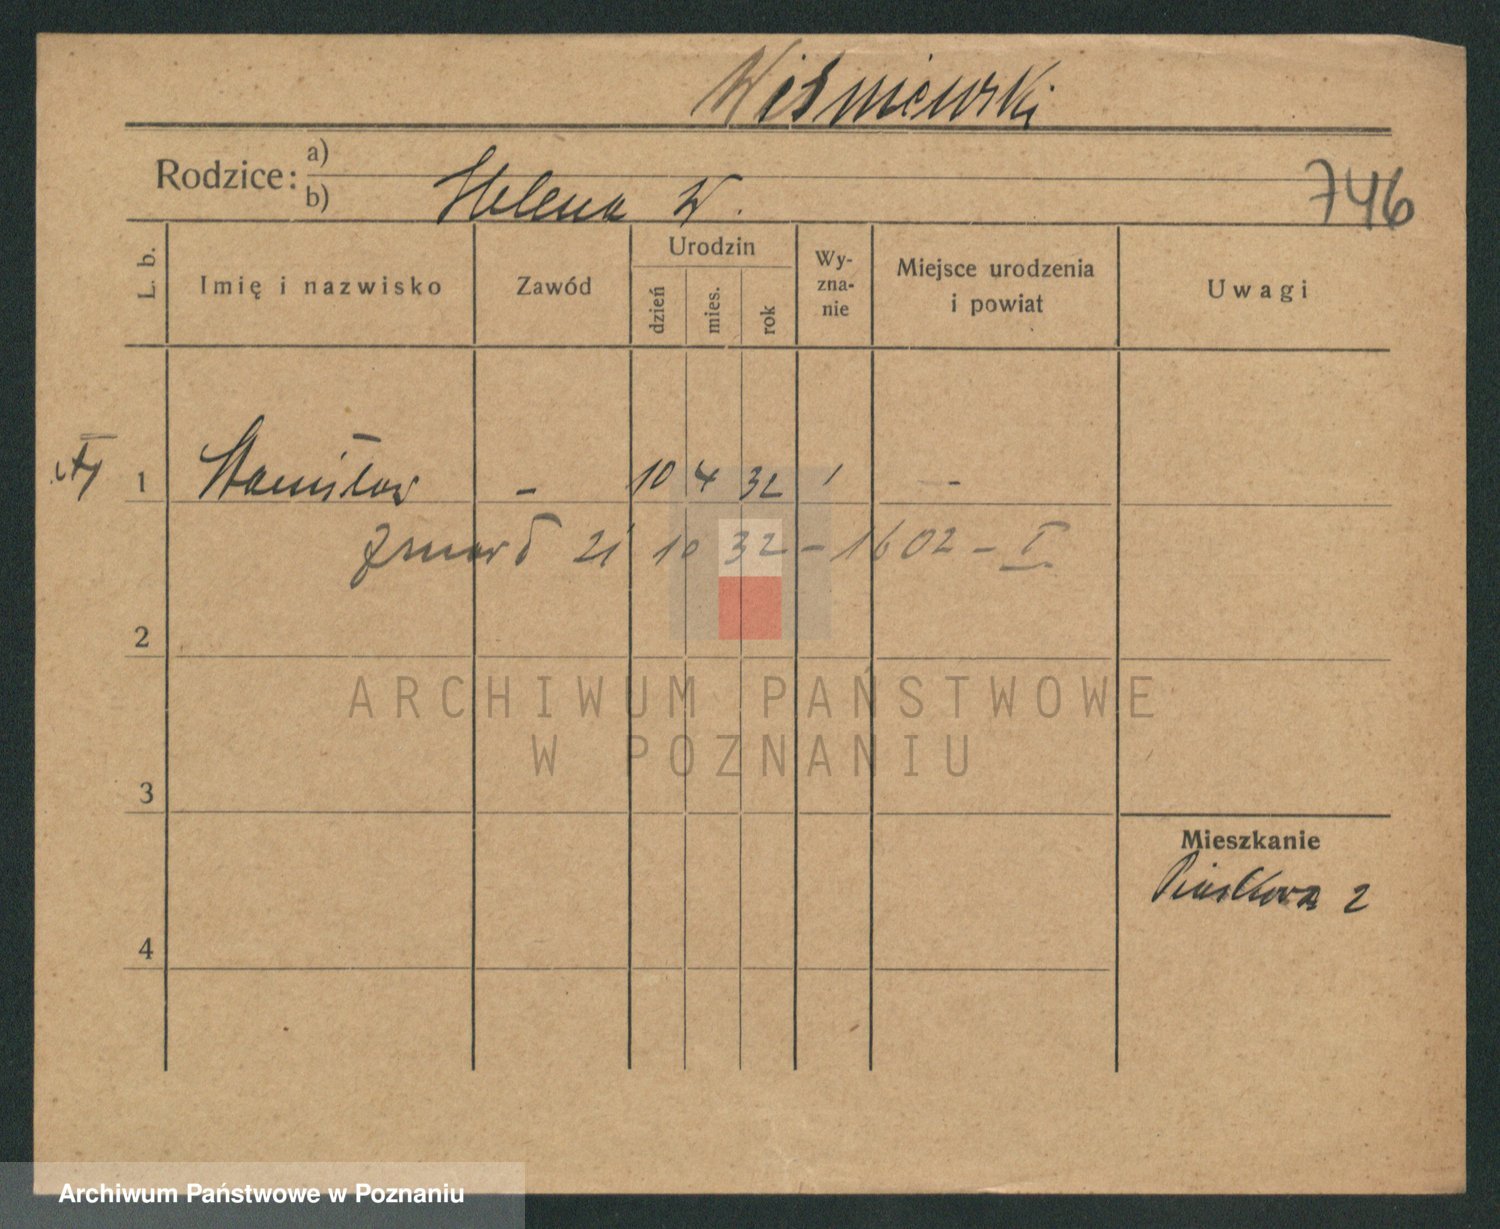 Wiśniewski
Rodzice: a)
b) Helena W.
746
L. b.
Imię i nazwisko
Zawód
Urodzin
dzień
mies.
rok
Wy-
zna-
nie
Miejsce urodzenia
i powiat
Uwagi
1 Stanisław - 10 4 32 1 -
zmarł 21 10 32 - 1602 - I.
2
3
4
Mieszkanie
Piaskowa 2
ARCHIWUM PAŃSTWOWE
W POZNANIU
Archiwum Państwowe w Poznaniu